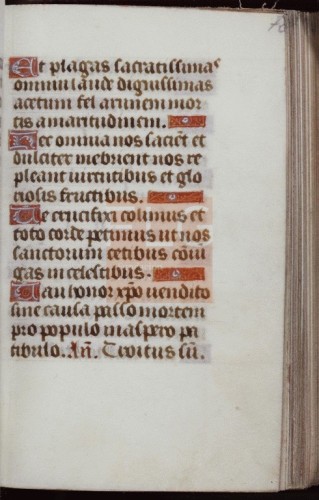 Et plagas sacratissimas
omnium laude dignissimas
acetum fel arundinem mor
tis amaritudinem.
Hec omnia nos sacient et
dulciter inebrient nos re
pleant virtutibus et glo
riosis fructibus.
Te crucifixi colimus et
toto corde petimus ut nos
sanctorum cetibus coniu
gas in celestibus.
Laus honor xpo vendito
sine causa passo mortem
pro populo in aspero pa
tibulo. An. Tristus sū.